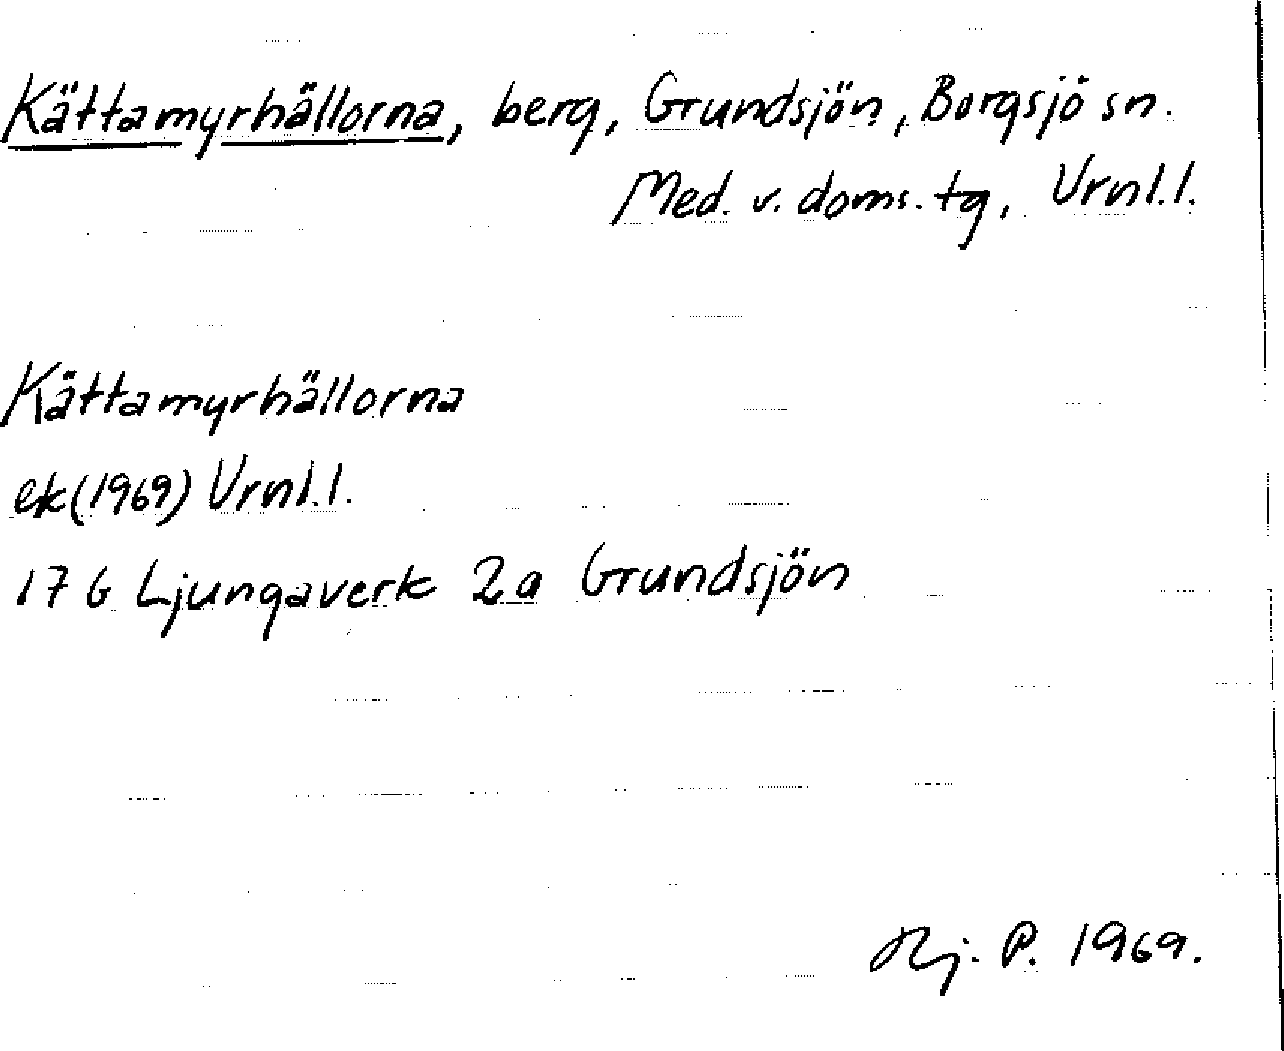 Kättamyrhällorna, berg, Grundsjön, Borgsjö sn.
Med. v. doms. tg, Vrnl.l.
Kättamyrhällorna
ek(1969) Vrnl.l.
17 G Ljungaverk 2a Grundsjön
Hj. P. 1969.